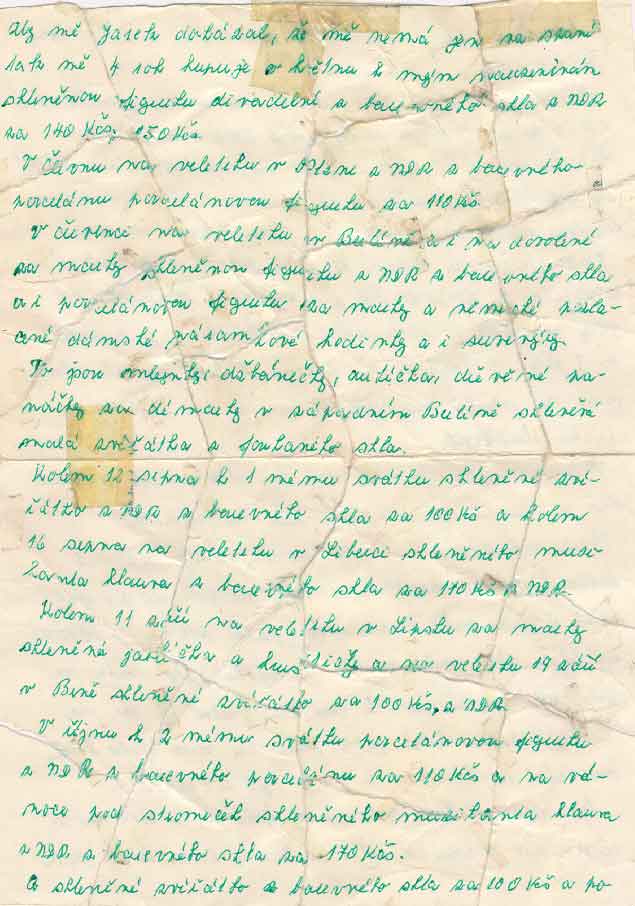 Aby mě Jarek dokázal, že mě nemá jen na spaní
tak mě 4 rok kupuje v květnu k mým narozeninám
skleněnou figurku divadelní z barevného skla z NDR
za 140 Kčs, 150 Kčs.
V červnu na veletrhu v Brně z NDR z barevného
porcelánu porcelánovou figurku za 110 Kčs
V červenci na veletrhu v Berlíně a i na dovolené
za marky skleněnou figurku z NDR z barevného skla
a i porcelánovou figurku za marky a německé pozla-
cené dámské náramkové hodinky a i suvenýry
To jsou mlejnky, džbánečky, autíčka, dřevěné pa-
náčky za dé marky v západním Berlíně skleněná
malá zvířátka z foukaného skla.
Kolem 12 srpna k 1 mému svátku skleněné zví-
řátko z NDR z barevného skla za 100 Kčs a kolem
16 srpna na veletrhu v Liberci skleněného muzi-
kanta klauna z barevného skla za 170 Kčs z NDR.
Kolem 11 září na veletrhu v Lipsku za marky
skleněná jablíčka a hruštičky a na veletrhu 19 září
v Brně skleněné zvířátko za 100 Kčs, z NDR
V říjnu k 2 mému svátku porcelánovou figurku
z NDR z barevného porcelánu za 110 Kčs a na vá-
noce pod stromeček skleněného muzikanta klauna
z NDR z barevného skla za 170 Kčs.
A skleněné zvířátko z barevného skla za 100 Kčs a po